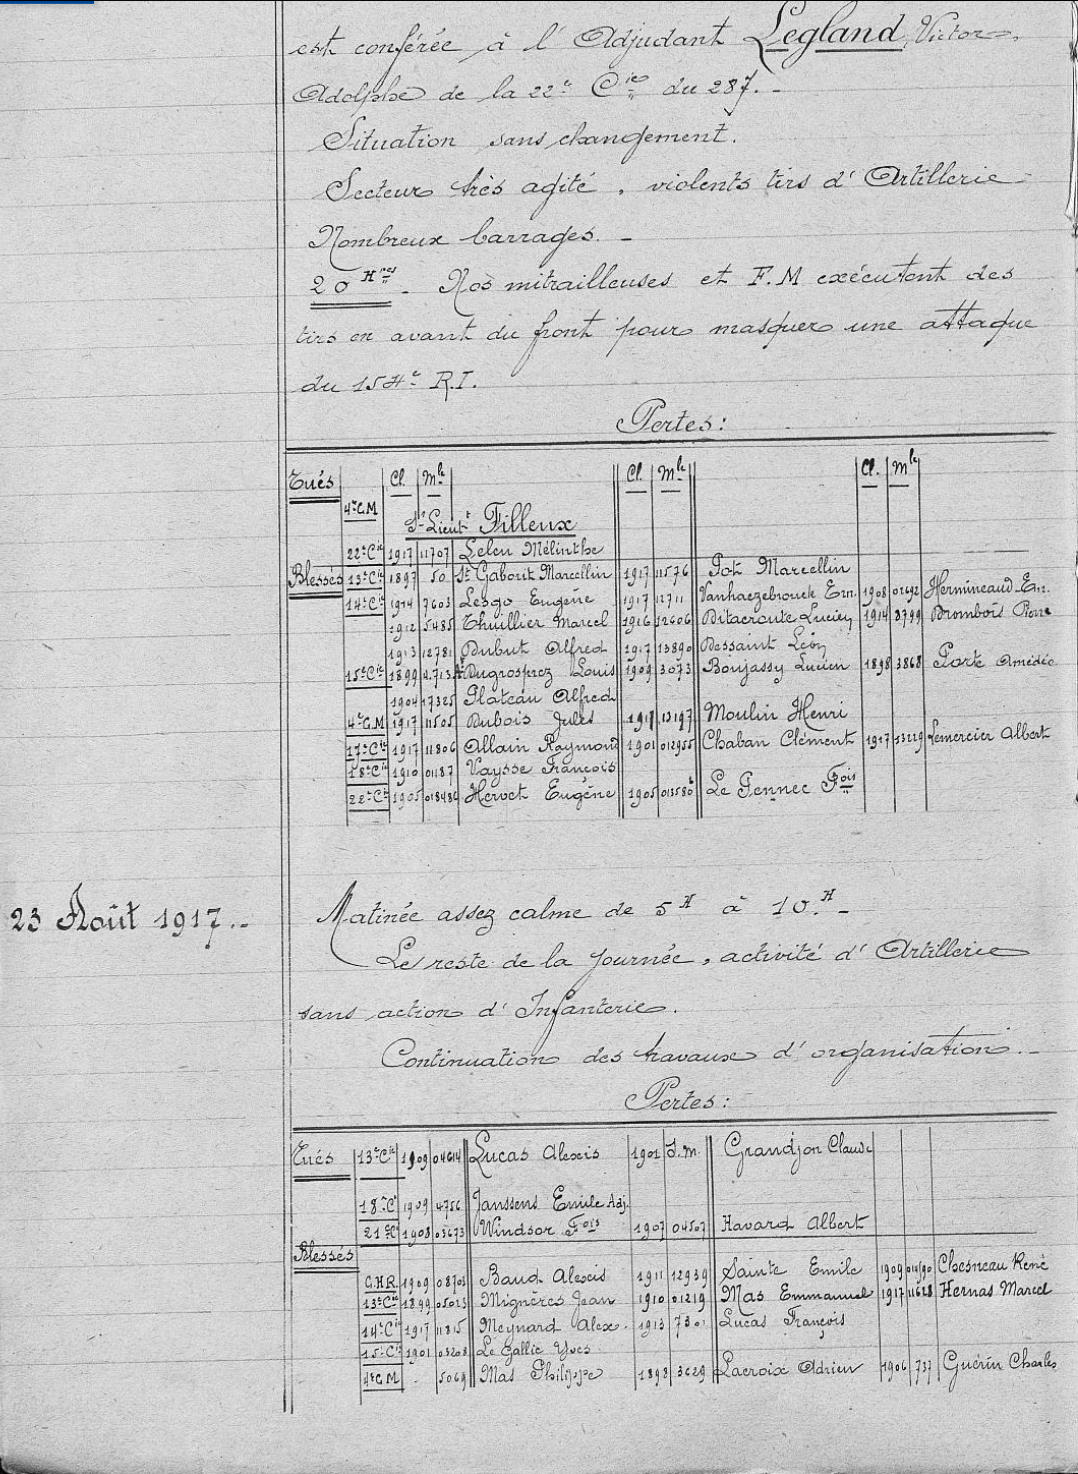 est conférée à l'Adjudant Legland Victor,
Adolphe de la 22e Cie du 287. -
Situation sans changement.
Secteur très agité, violents tirs d'Artillerie -
Nombreux barrages. -
20 Hres - Nos mitrailleuses et F.M exécutent des
tirs en avant du front pour masquer une attaque
du 154e R.I.
Pertes :
Tués Cl. Mle Cl. Mle Cl. Mle
4e C.M St Lieutt Filleux
22e Cie 1917 11707 Leleu Mélinthe
Blessés 13e Cie 1897 50 St Gaborit Marcellin 1917 11576 Pot Marcellin
14e Cie 1914 7603 Lesgo Eugène 1917 12711 Vanhaezebrouck Ern. 1908 01692 Hermineaud Em.
1912 5485 Thuillier Marcel 1916 12606 Ditacroute Lucien 1914 8799 Brombois Pierre
1913 12781 Dubut Alfred 1917 13890 Dessaint Léon
15e Cie 1899 4713 Dugrosprez Louis 1909 3073 Boujassy Lucien 1898 3868 Porte Amédée
1904 17325 Plateau Alfred
4e C.M 1917 11505 Dubois Jules 1917 13197 Moulin Henri
17e Cie 1917 11806 Allain Raymond 1901 012955 Chaban Clément 1917 13229 Lemercier Albert
18e Cie 1910 01187 Vaysse François
22e Cie 1905 018484 Hervet Eugène 1905 013580 Le Pennec Fois
23 Août 1917. - Matinée assez calme de 5H à 10.H -
Le reste de la journée, activité d'Artillerie
sans action d'Infanterie.
Continuation des travaux d'organisation. -
Pertes :
Tués 13e Cie 1909 04614 Lucas Alexis 1901 S.M. Grandjon Claude
18e Cie 1909 4756 Janssens Emile Adj.
21e Cie 1908 03673 Windsor Fois 1907 04507 Havard Albert
Blessés
C.H.R. 1909 08703 Baud Alexis 1911 12939 Sainte Emile 1909 Chesneau René
13e Cie 1899 05023 Mignères Jean 1910 01219 Mas Emmanuel 1917 11628 Hernas Marcel
14e Cie 1917 11815 Meynard Alex. 1913 7301 Lucas François
15e Cie 1901 03208 Le Gallic Yves
4e C.M 5069 Mas Philippe 1898 3629 Lacroix Adrien 1906 737 Guérin Charles